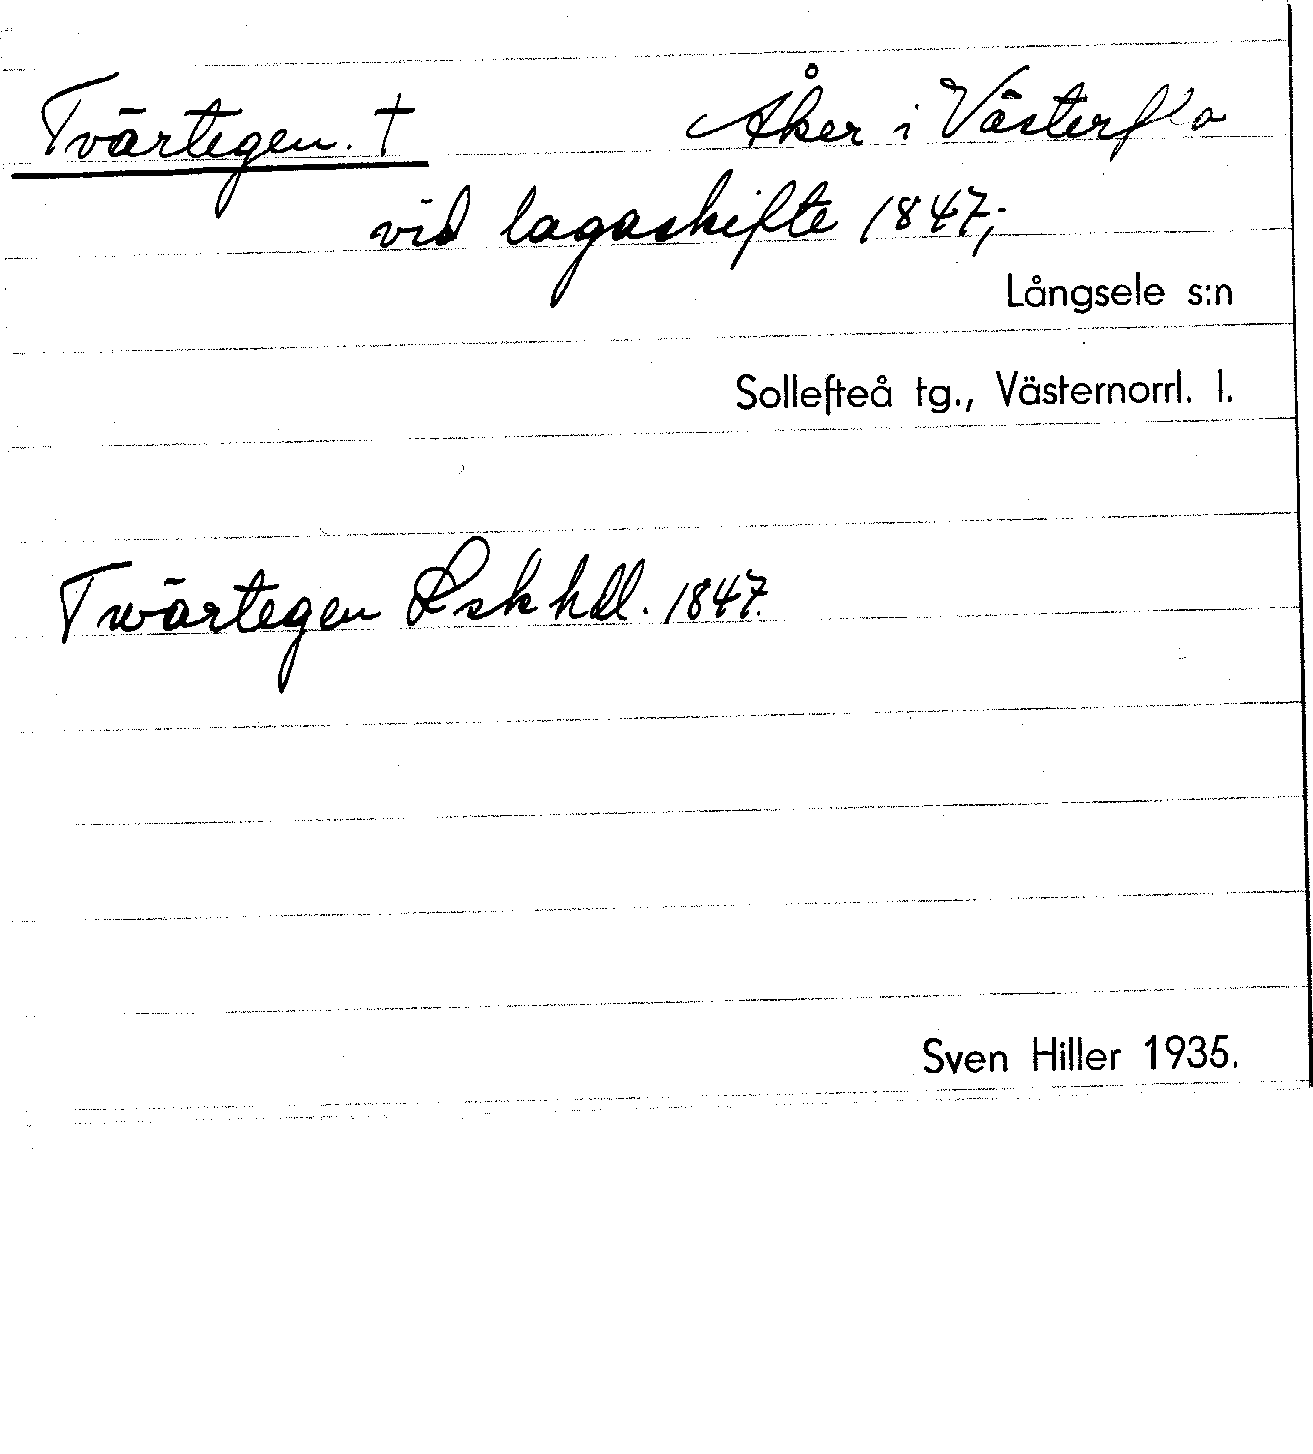 Tvärtegen. † Åker i Västerflo
vid lagaskifte 1847,-
Långsele s:n
Sollefteå tg., Västernorrl. l.
Twärtegen Lsk hdl. 1847.
Sven Hiller 1935.